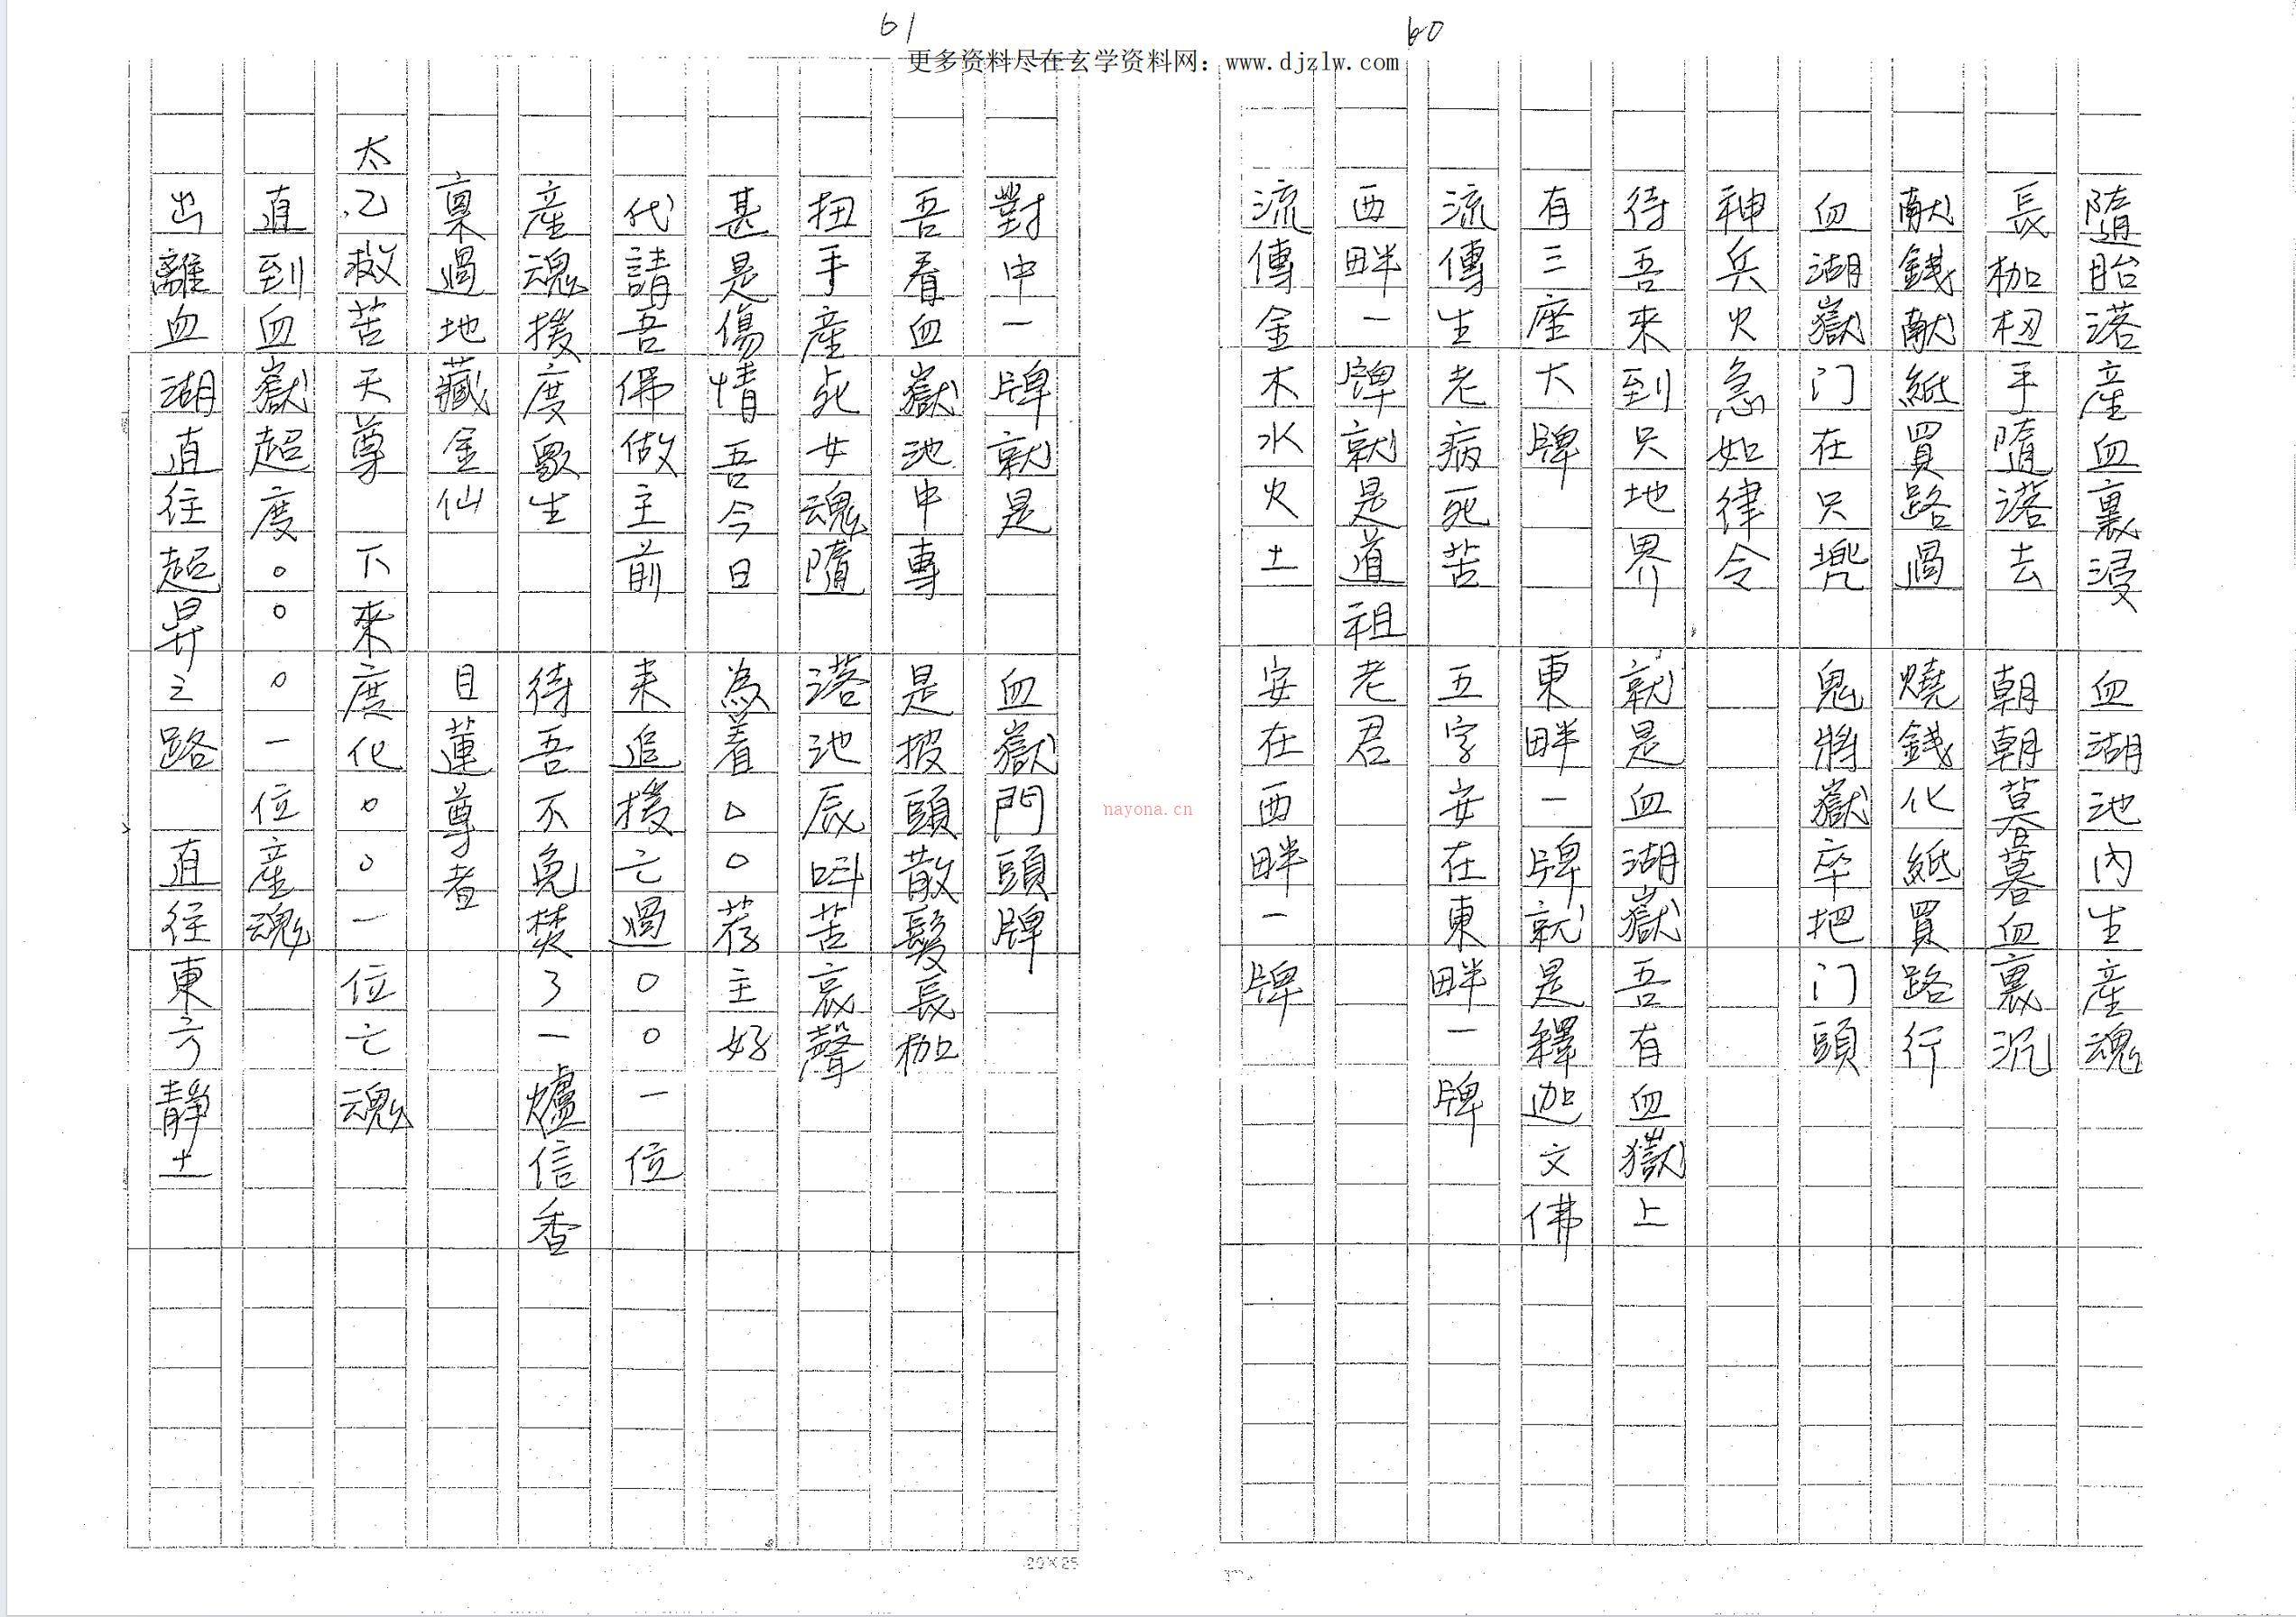 61
60
更多资料尽在玄学资料网：www.djzlw.com
隨胎落產血裏浸 血湖池內生產魂
長枷杻手隨落去 朝朝暮暮血裏沉
献錢献紙買路過 燒錢化紙買路行
血湖嶽门在只兠 鬼將嶽卒把门頭
神兵火急如律令
待吾來到只地界 就是血湖嶽吾有血獄上
有三座大牌 東畔一牌就是釋迦文佛
流傳生老病死苦 五字安在東畔一牌
西畔一牌就是道祖老君
流傳金木水火土 安在西畔一牌
對中一牌就是 血嶽門頭牌
吾看血嶽池中專 是披頭散髮長枷
扭手產死女魂隨 落池辰呌苦哀聲
甚是傷情吾今日 為着○○荐主好
代請吾佛做主前 来追援亡過○○一位
產魂援度眾生 待吾不免焚了一爐信香
稟過地藏金仙 目蓮尊者
太乙救苦天尊 下來度化○○一位亡魂
直到血嶽超度○○○一位產魂
出離血湖直往超昇之路 直往東方靜土
hayona.cn
20×25